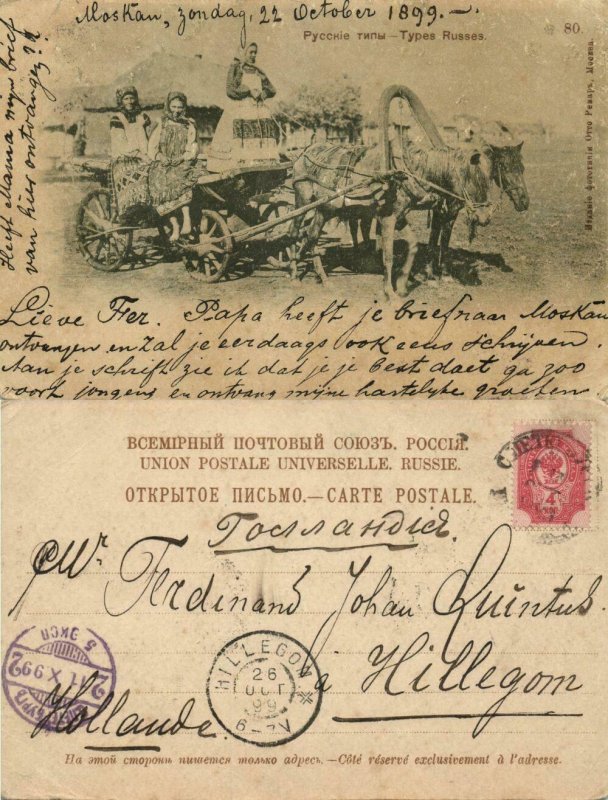 Moskau, zondag, 22 October 1899.—
Русскіе типы — Types Russes.
80.
Heeft Mama mijn brief
van hier ontvangen??
Изданіе фототипіи Отто Ренаръ, Москва.
Lieve Fer. Papa heeft je brief naar Moskau
ontvangen en zal je eerdaags ook eens schrijven.
Aan je schrift zie ik dat je je best doet ga zoo
voort jongens en ontvang mijne hartelijke groeten
ВСЕМІРНЫЙ ПОЧТОВЫЙ СОЮЗЪ. РОССІЯ.
UNION POSTALE UNIVERSELLE. RUSSIE.
ОТКРЫТОЕ ПИСЬМО.—CARTE POSTALE.
4
Голландія.
Mr Ferdinand Johan Quintus
5 ЭКСП
11 X 99
2
HILLEGOM
26
OCT
99
6-7V
à Hillegom
Hollande.
На этой сторонѣ пишется только адресъ.—Côté réservé exclusivement à l'adresse.